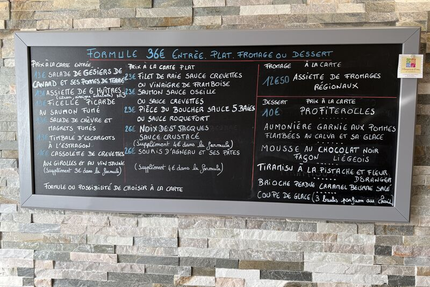 FORMULE 36€ ENTRÉE. PLAT. FROMAGE OU DESSERT
PRIX À LA CARTE ENTRÉE
SALADE DE GESIERS DE
CANARD ET SES POMMES DE TERRE
ASSIETTE DE 6 HUÎTRES
FICELLE PICARDE
AU SAUMON FUMÉ
SALADE DE CHÈVRE ET
MAGRETS FUMÉS
TIMBALE D'ESCARGOTS
À L'ESTRAGON
CASSOLETTE DE CREVETTES
AUX GIROLLES ET AU VIN JAUNE
(Supplément 3€ dans la formule)
FORMULE OU POSSIBILITÉ DE CHOISIR À LA CARTE
PRIX À LA CARTE PLAT
23€ FILET DE RAIE SAUCE CREVETTES
OU VINAIGRE DE FRAMBOISE
SAUMON SAUCE OSEILLE
OU SAUCE CREVETTES
23€ PIÈCE DU BOUCHER SAUCE 5 BAIES
OU SAUCE ROQUEFORT
26€ NOIX DE ST JACQUES
SAUCE CRUSTACÉ
(Supplément 6€ dans la formule)
26€ SOURIS D'AGNEAU ET SES PÂTES
(Supplément 6€ dans la formule)
FROMAGE À LA CARTE
12€50 ASSIETTE DE FROMAGES
RÉGIONAUX
DESSERT PRIX À LA CARTE
10€ PROFITEROLLES
AUMONIÈRE GARNIE AUX POMMES
FLAMBÉES AU CALVA ET SA GLACE
MOUSSE AU CHOCOLAT NOIR
FAÇON LIÉGEOIS
TIRAMISU À LA PISTACHE ET FLEUR
D'ORANGER
BRIOCHE PERDUE CARAMEL BEURRE SALÉ
COUPE DE GLACE (3 boules parfum au choix)